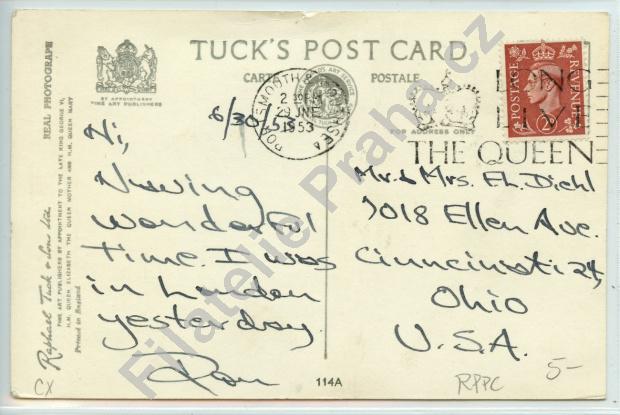 TUCK'S POST CARD
CARTE POSTALE
BY APPOINTMENT
FINE ART PUBLISHERS
REAL PHOTOGRAPH
FOR ADDRESS ONLY
Raphael Tuck & Sons Ltd.
FINE ART PUBLISHERS BY APPOINTMENT TO THE LATE KING GEORGE VI,
H.M. QUEEN ELIZABETH THE QUEEN MOTHER AND H.M. QUEEN MARY
Printed in England
PORTSMOUTH & SOUTHSEA
29 JNE
1953
LONG
LIVE
THE QUEEN
POSTAGE
REVENUE
2D
6/30/53
Hi,
Having
wonderful
time. I was
in London
yesterday.
Ron
Mr. & Mrs. E.L. Diehl
7018 Ellen Ave.
Cinncinati 24,
Ohio
U.S.A.
114A
CX
RPPC
5-
Filatelie Praha.cz